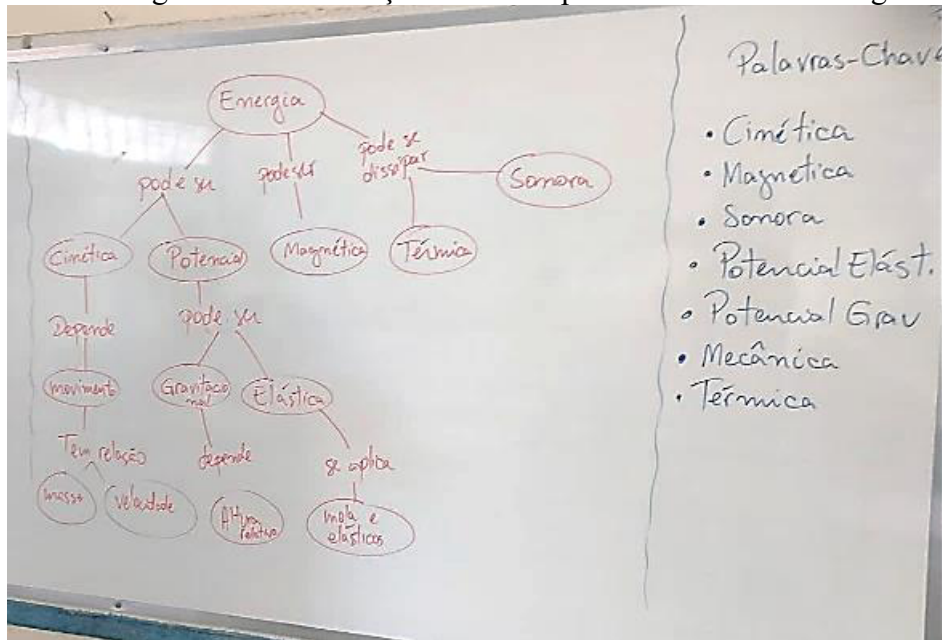 Energia
pode se
dissipar
pode ser
pode ser
Sonora
Cinética
Potencial
Magnética
Térmica
Depende
pode ser
movimento
Gravitacio
nal
Elástica
Tem relação
depende
se aplica
massa
velocidade
Altura
relativa
mola e
elásticos
Palavras-Chave
• Cinética
• Magnetica
• Sonora
• Potencial Elást.
• Potencial Grav
• Mecânica
• Térmica